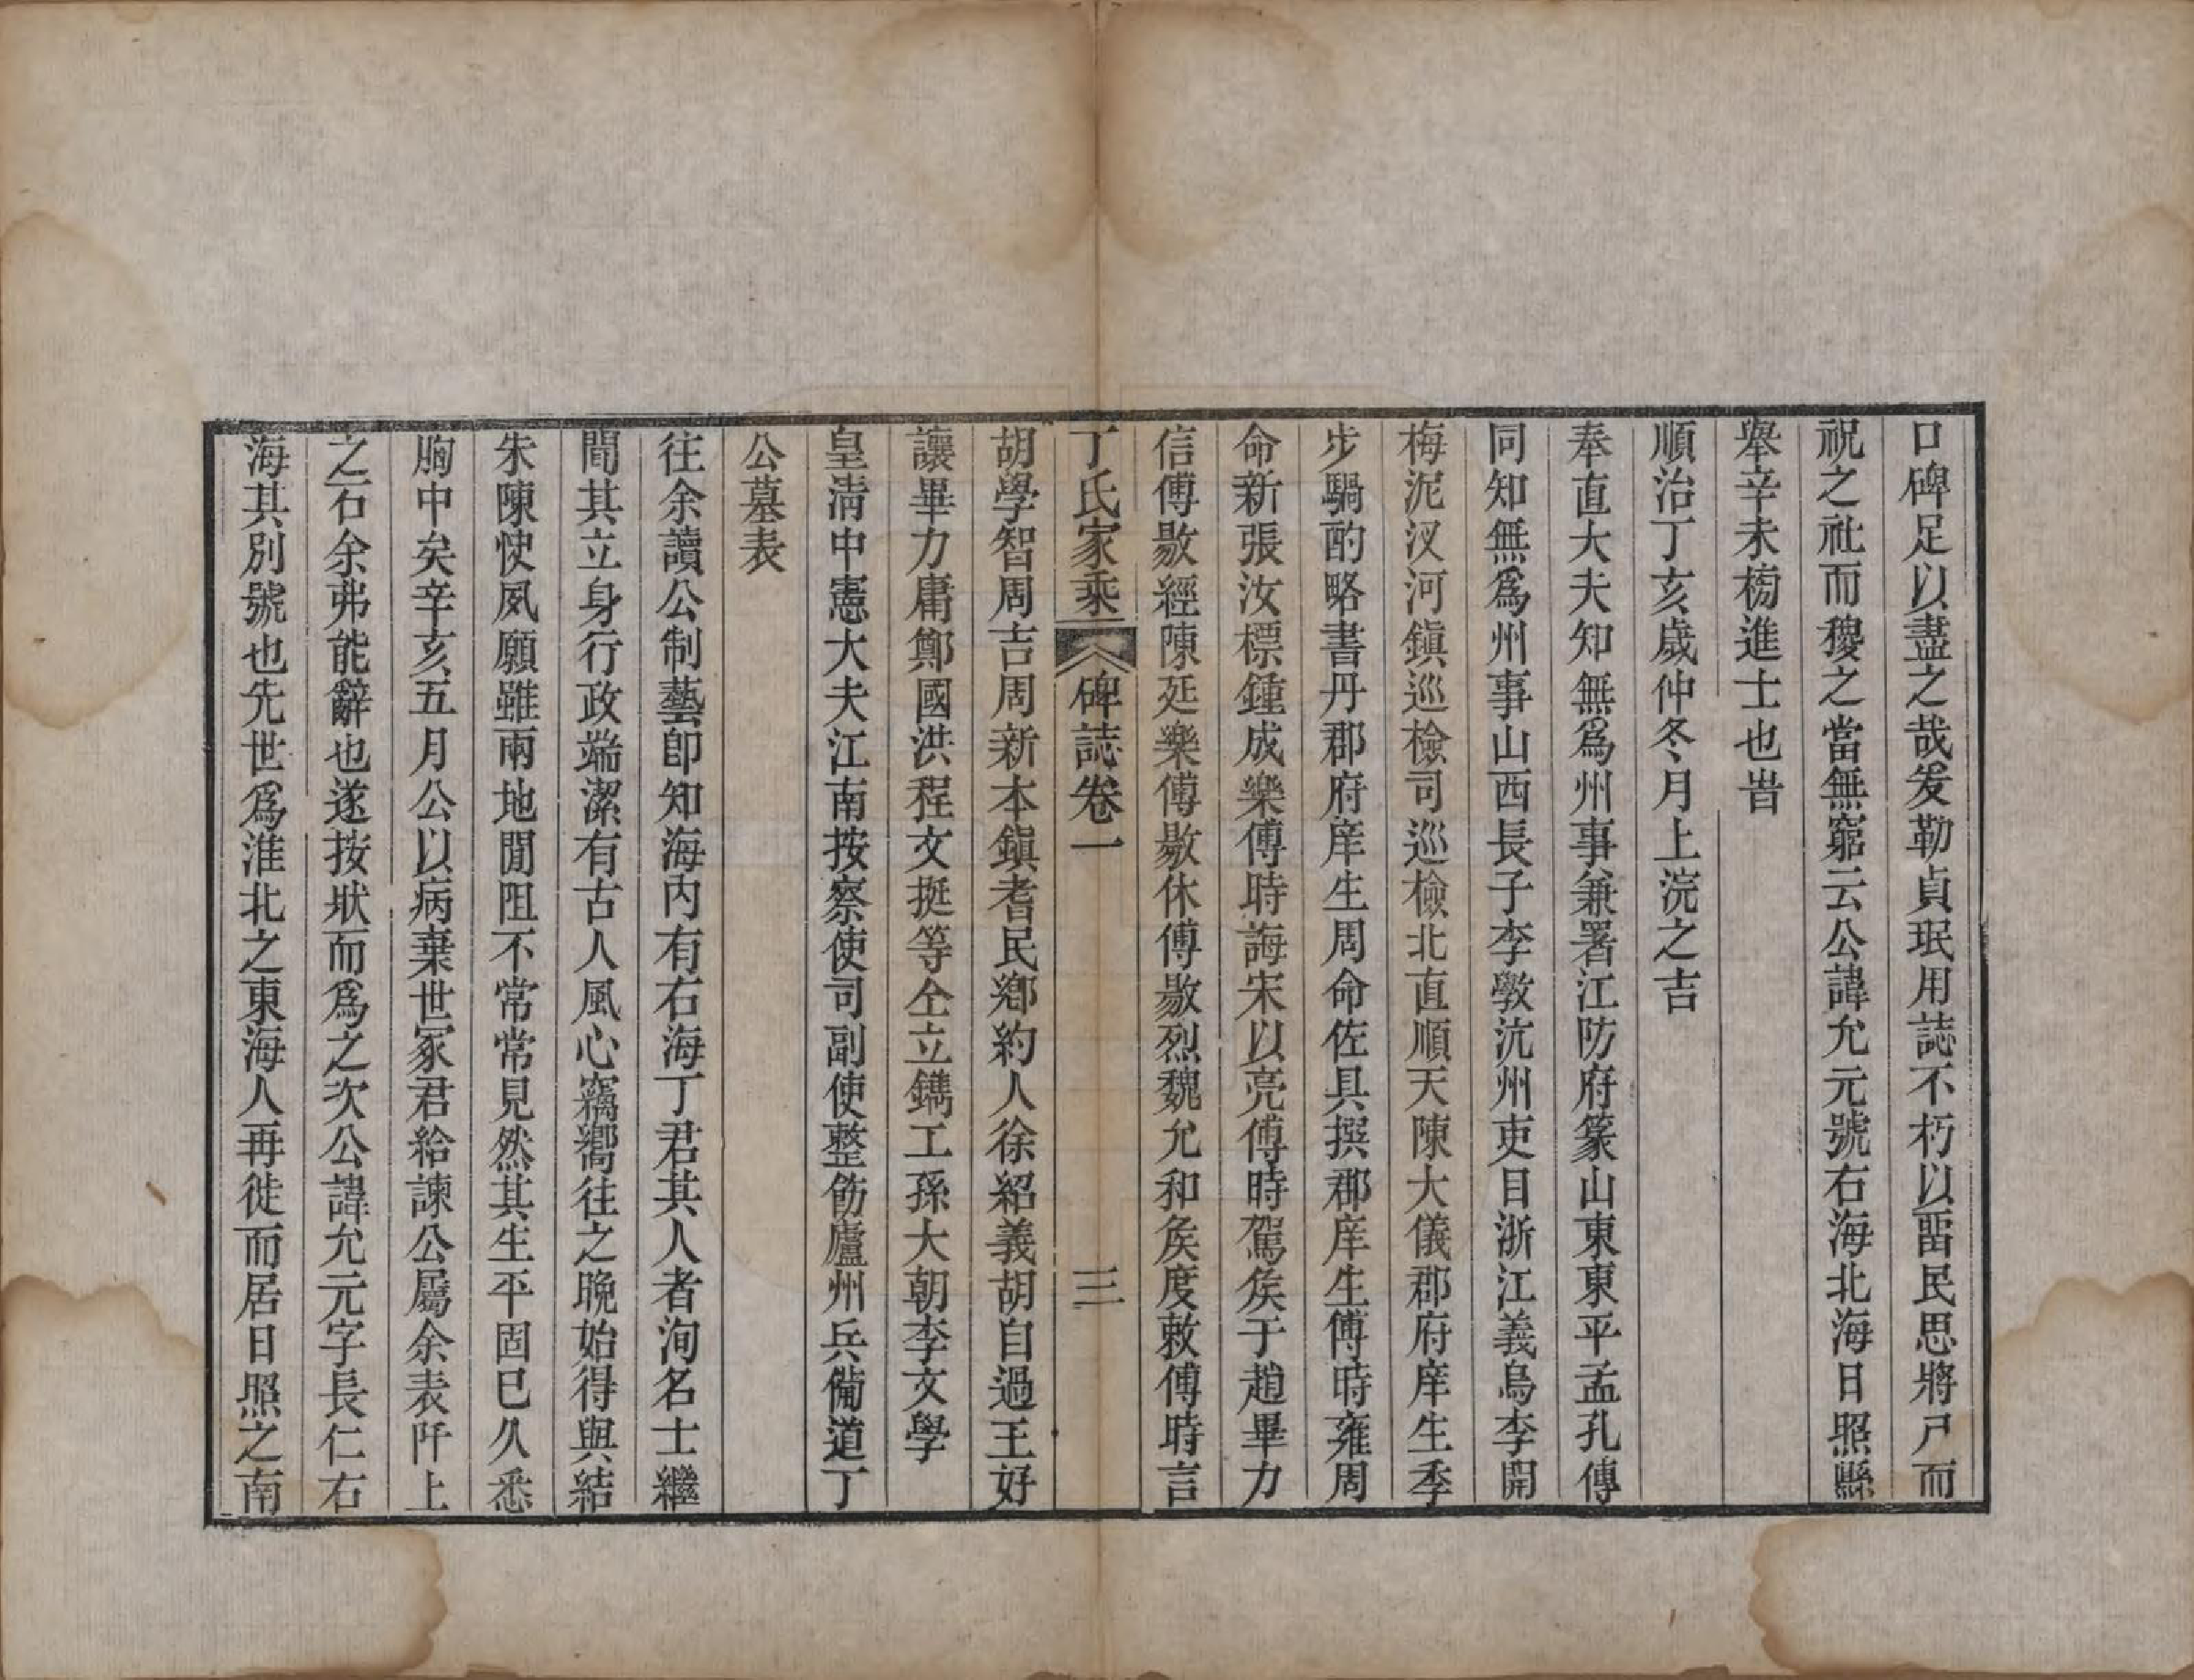 口碑足以盡之哉爰勒貞珉用誌不朽以畱民思將尸而
祝之社而稷之當無窮云公諱允元號右海北海日照縣
舉辛未榜進士也旹
順治丁亥歲仲冬月上浣之吉
奉直大夫知無爲州事兼署江防府篆山東東平孟孔傳
同知無爲州事山西長子李斆沆州吏目浙江義烏李開
梅泥汊河鎭巡檢司巡檢北直順天陳大儀郡府庠生季
步騧酌略書丹郡府庠生周命佐具撰郡庠生傅時雍周
命新張汝標鍾成樂傅時誨宋以亮傅時駕侯于趙畢力
信傅敭經陳延樂傅敭休傅敭烈魏允和侯度敕傅時言
丁氏家乘 碑誌卷一 三
胡學智周吉周新本鎭耆民鄉約人徐紹義胡自過王好
讓畢力庸鄭國洪程文挺等仝立鐫工孫大朝李文學
皇淸中憲大夫江南按察使司副使整飭廬州兵備道丁
公墓表
往余讀公制藝卽知海內有右海丁君其人者洵名士繼
聞其立身行政端潔有古人風心竊嚮往之晚始得與結
朱陳快夙願雖兩地間阻不常常見然其生平固已久悉
胸中矣辛亥五月公以病棄世冢君給諫公屬余表阡上
之石余弗能辭也遂按狀而爲之次公諱允元字長仁右
海其別號也先世爲淮北之東海人再徙而居日照之南